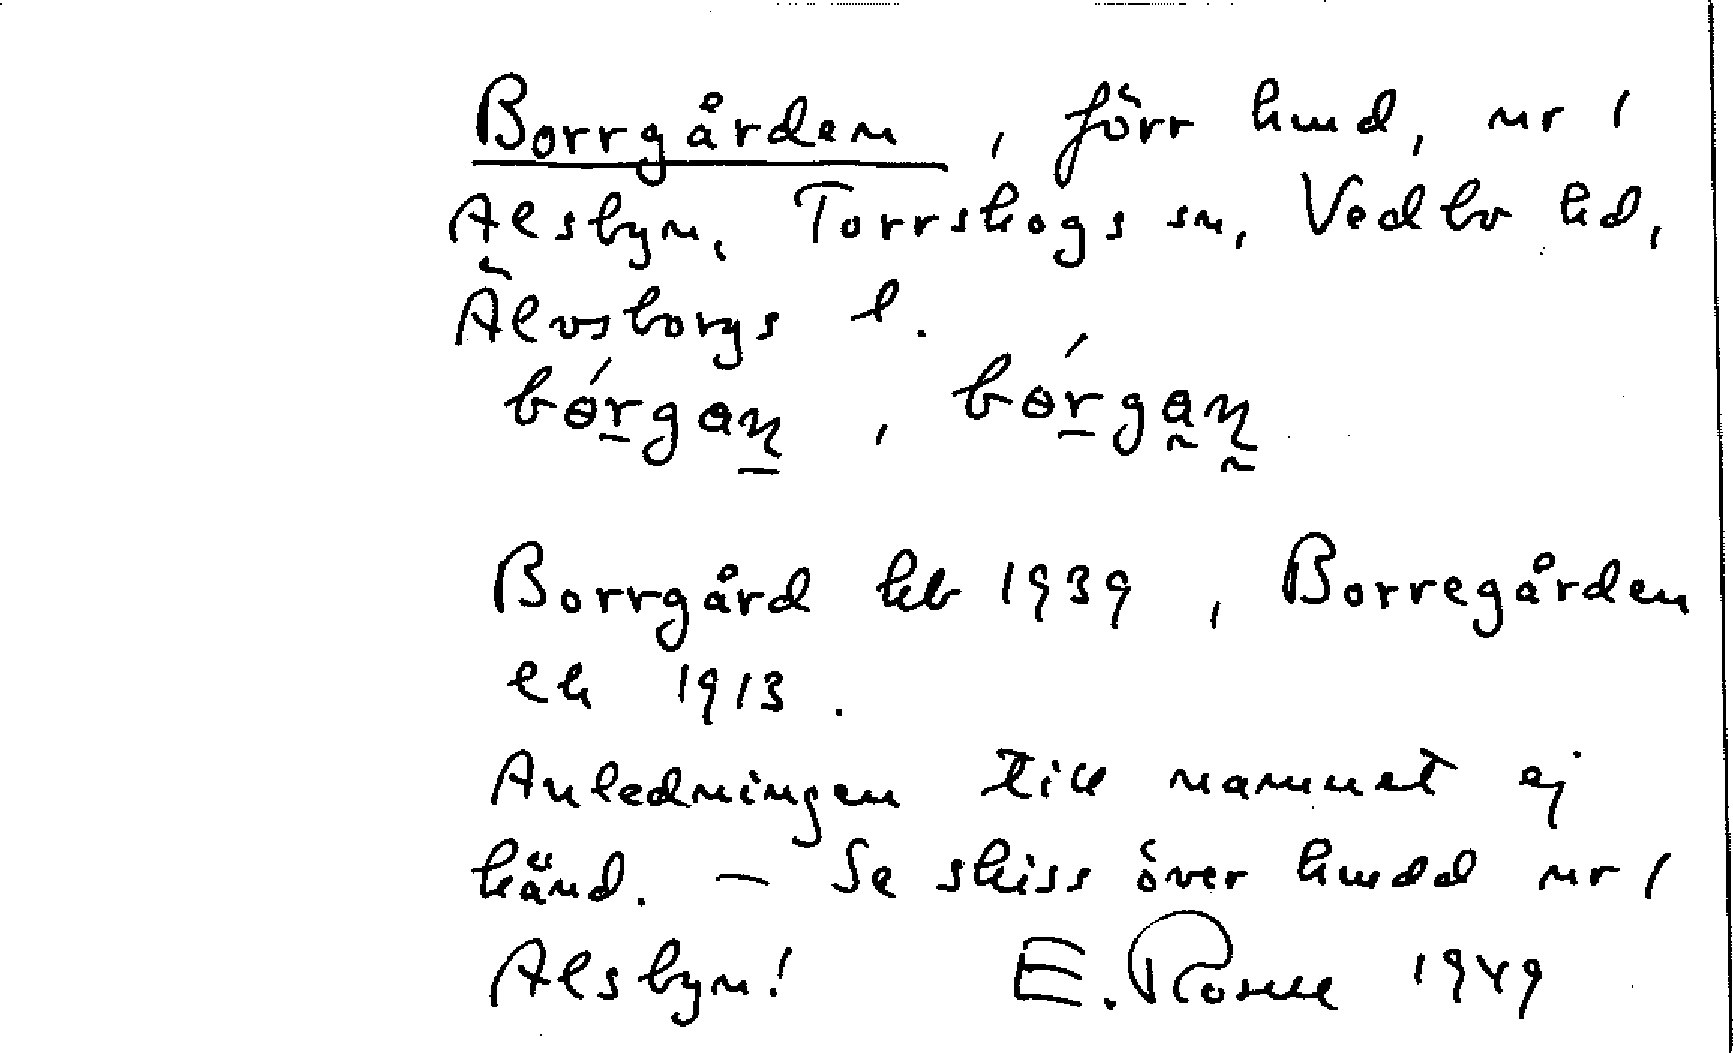 Borrgården, förr hmd, nr 1
Alsbyn, Torrskogs sn, Vedbo hd,
Älvsborgs l.
bórgan, bórgan
Borrgård hb 1939, Borregården
ek 1913.
Anledningen till namnet ej
känd. — Se skiss över hmdd nr 1
Alsbyn! E. Rosell 1949